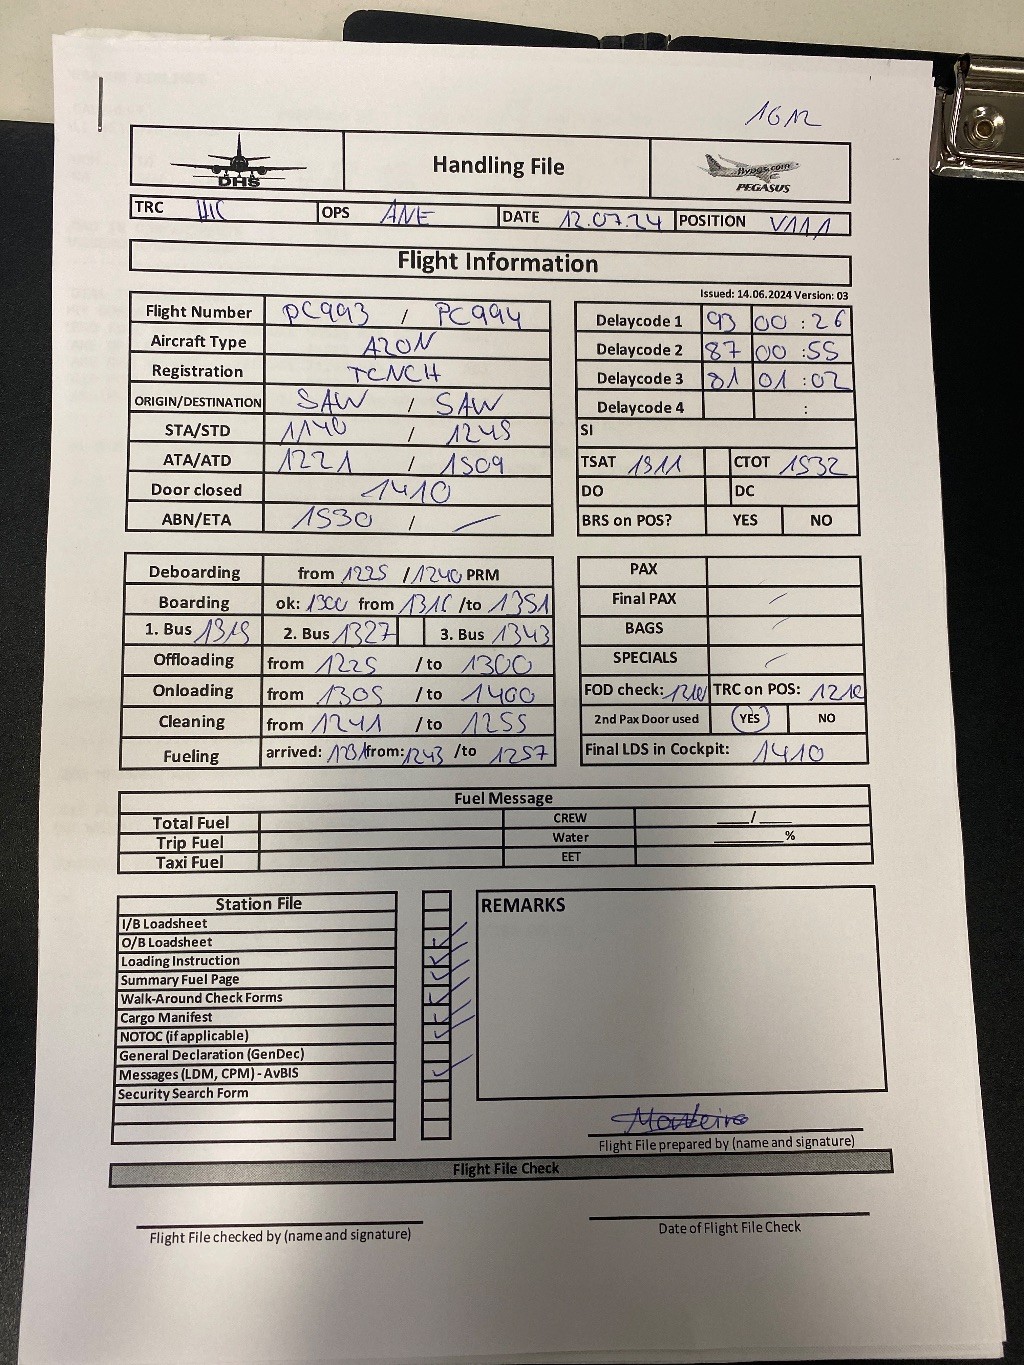 1612
DHS
Handling File
flypgs.com
PEGASUS
TRC OPS ANE DATE 12.07.24 POSITION V111
Flight Information
Issued: 14.06.2024 Version: 03
Flight Number PC993 / PC994
Aircraft Type A20N
Registration TCNCH
ORIGIN/DESTINATION SAW / SAW
STA/STD 1140 / 1245
ATA/ATD 1221 / 1509
Door closed 1410
ABN/ETA 1530 /
Delaycode 1 93 00 : 26
Delaycode 2 87 00 : 55
Delaycode 3 81 01 : 02
Delaycode 4 :
SI
TSAT 1511 CTOT 1532
DO DC
BRS on POS? YES NO
Deboarding from 1225 / 1240 PRM
Boarding ok: 1300 from 1316 /to 1351
1. Bus 1319 2. Bus 1327 3. Bus 1343
Offloading from 1225 / to 1300
Onloading from 1305 / to 1400
Cleaning from 1241 / to 1255
Fueling arrived: 1231 from: 1243 /to 1257
PAX
Final PAX
BAGS
SPECIALS
FOD check: 1210 TRC on POS: 1210
2nd Pax Door used YES NO
Final LDS in Cockpit: 1410
Fuel Message
Total Fuel CREW ____/____
Trip Fuel Water ________%
Taxi Fuel EET
Station File
I/B Loadsheet
O/B Loadsheet
Loading Instruction
Summary Fuel Page
Walk-Around Check Forms
Cargo Manifest
NOTOC (if applicable)
General Declaration (GenDec)
Messages (LDM, CPM) - AvBIS
Security Search Form
REMARKS
Monteiro
Flight File prepared by (name and signature)
Flight File Check
Flight File checked by (name and signature)
Date of Flight File Check